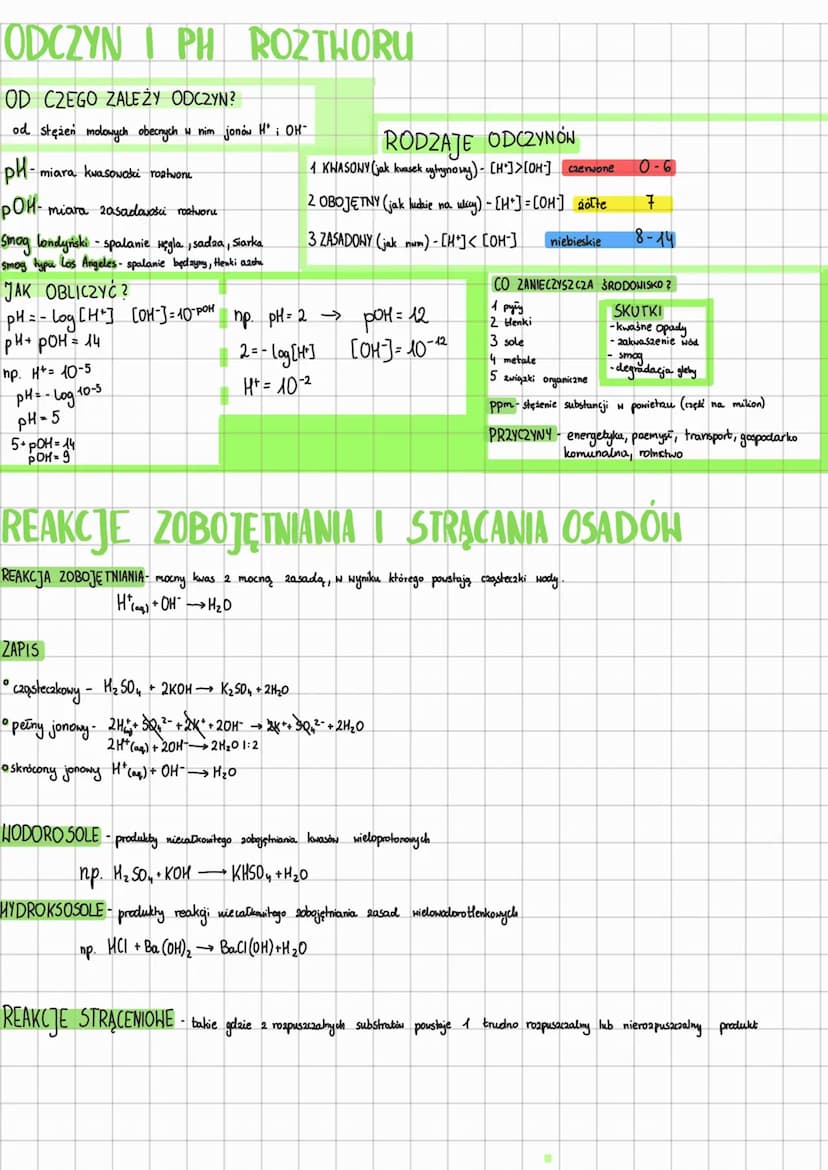 ODCZYN I PH ROZTWORU
OD CZEGO ZALEŻY ODCZYN?
od stężeń molowych obecnych w nim jonów H⁺ i OH⁻
pH - miara kwasowości roztworu
pOH - miara zasadowości roztworu
Smog londyński - spalanie węgla, sadza, siarka
smog typu Los Angeles - spalanie benzyny, tlenki azotu
RODZAJE ODCZYNÓW
1 KWASOWY (jak kwasek cytrynowy) - [H⁺]>[OH⁻] czerwone 0-6
2 OBOJĘTNY (jak ludzie na ulicy) - [H⁺]=[OH⁻] żółte 7
3 ZASADOWY (jak num) - [H⁺]< [OH⁻] niebieskie 8-14
JAK OBLICZYĆ?
pH = - log [H⁺] [OH⁻]=10⁻ᵖᴼᴴ
pH + pOH = 14
np. H⁺= 10⁻⁵
pH = - log 10⁻⁵
pH = 5
5 + pOH = 14
pOH = 9
np. pH = 2 → pOH = 12
2 = - log[H⁺] [OH⁻] = 10⁻¹²
H⁺ = 10⁻²
CO ZANIECZYSZCZA ŚRODOWISKO?
1 pyły
2 tlenki
3 sole
4 metale
5 związki organiczne
SKUTKI
- kwaśne opady
- zakwaszenie wód
- smog
- degradacja gleby
ppm - stężenie substancji w powietrzu (część na milion)
PRZYCZYNY - energetyka, przemysł, transport, gospodarka
komunalna, rolnictwo
REAKCJE ZOBOJĘTNIANIA I STRĄCANIA OSADÓW
REAKCJA ZOBOJĘTNIANIA - mocny kwas z mocną zasadą, w wyniku którego powstają cząsteczki wody.
H⁺(aq) + OH⁻ → H₂O
ZAPIS
° cząsteczkowy - H₂SO₄ + 2KOH → K₂SO₄ + 2H₂O
° pełny jonowy - 2H⁺ + SO₄²⁻ + 2K⁺ + 2OH⁻ → 2K⁺ + SO₄²⁻ + 2H₂O
2H⁺(aq) + 2OH⁻ → 2H₂O 1:2
° skrócony jonowy H⁺(aq) + OH⁻ → H₂O
WODOROSOLE - produkty niecałkowitego zobojętniania kwasów wieloprotonowych
np. H₂SO₄ + KOH → KHSO₄ + H₂O
HYDROKSOSOLE - produkty reakcji niecałkowitego zobojętniania zasad wielowodorotlenkowych
np. HCl + Ba(OH)₂ → BaCl(OH) + H₂O
REAKCJE STRĄCENIOWE - takie gdzie z rozpuszczalnych substratów powstaje 1 trudno rozpuszczalny lub nierozpuszczalny produkt